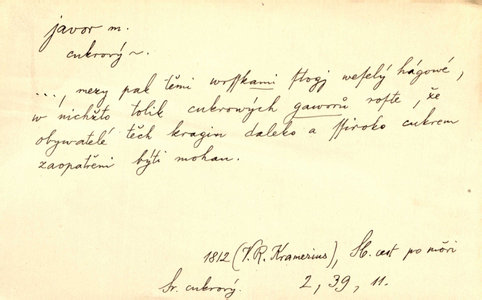 javor m.
cukrový ~.
..., mezy pak těmi wrsskami stogj weselý hágowé,
w nichžto tolik cukrowých gaworů roste, že
obywatelé těch kragin daleko a ssiroko cukrem
zaopatřeni býti mohau.
1812 (V. R. Kramerius), Sb. cest po moři
Sr. cukrový. 2, 39, 11.